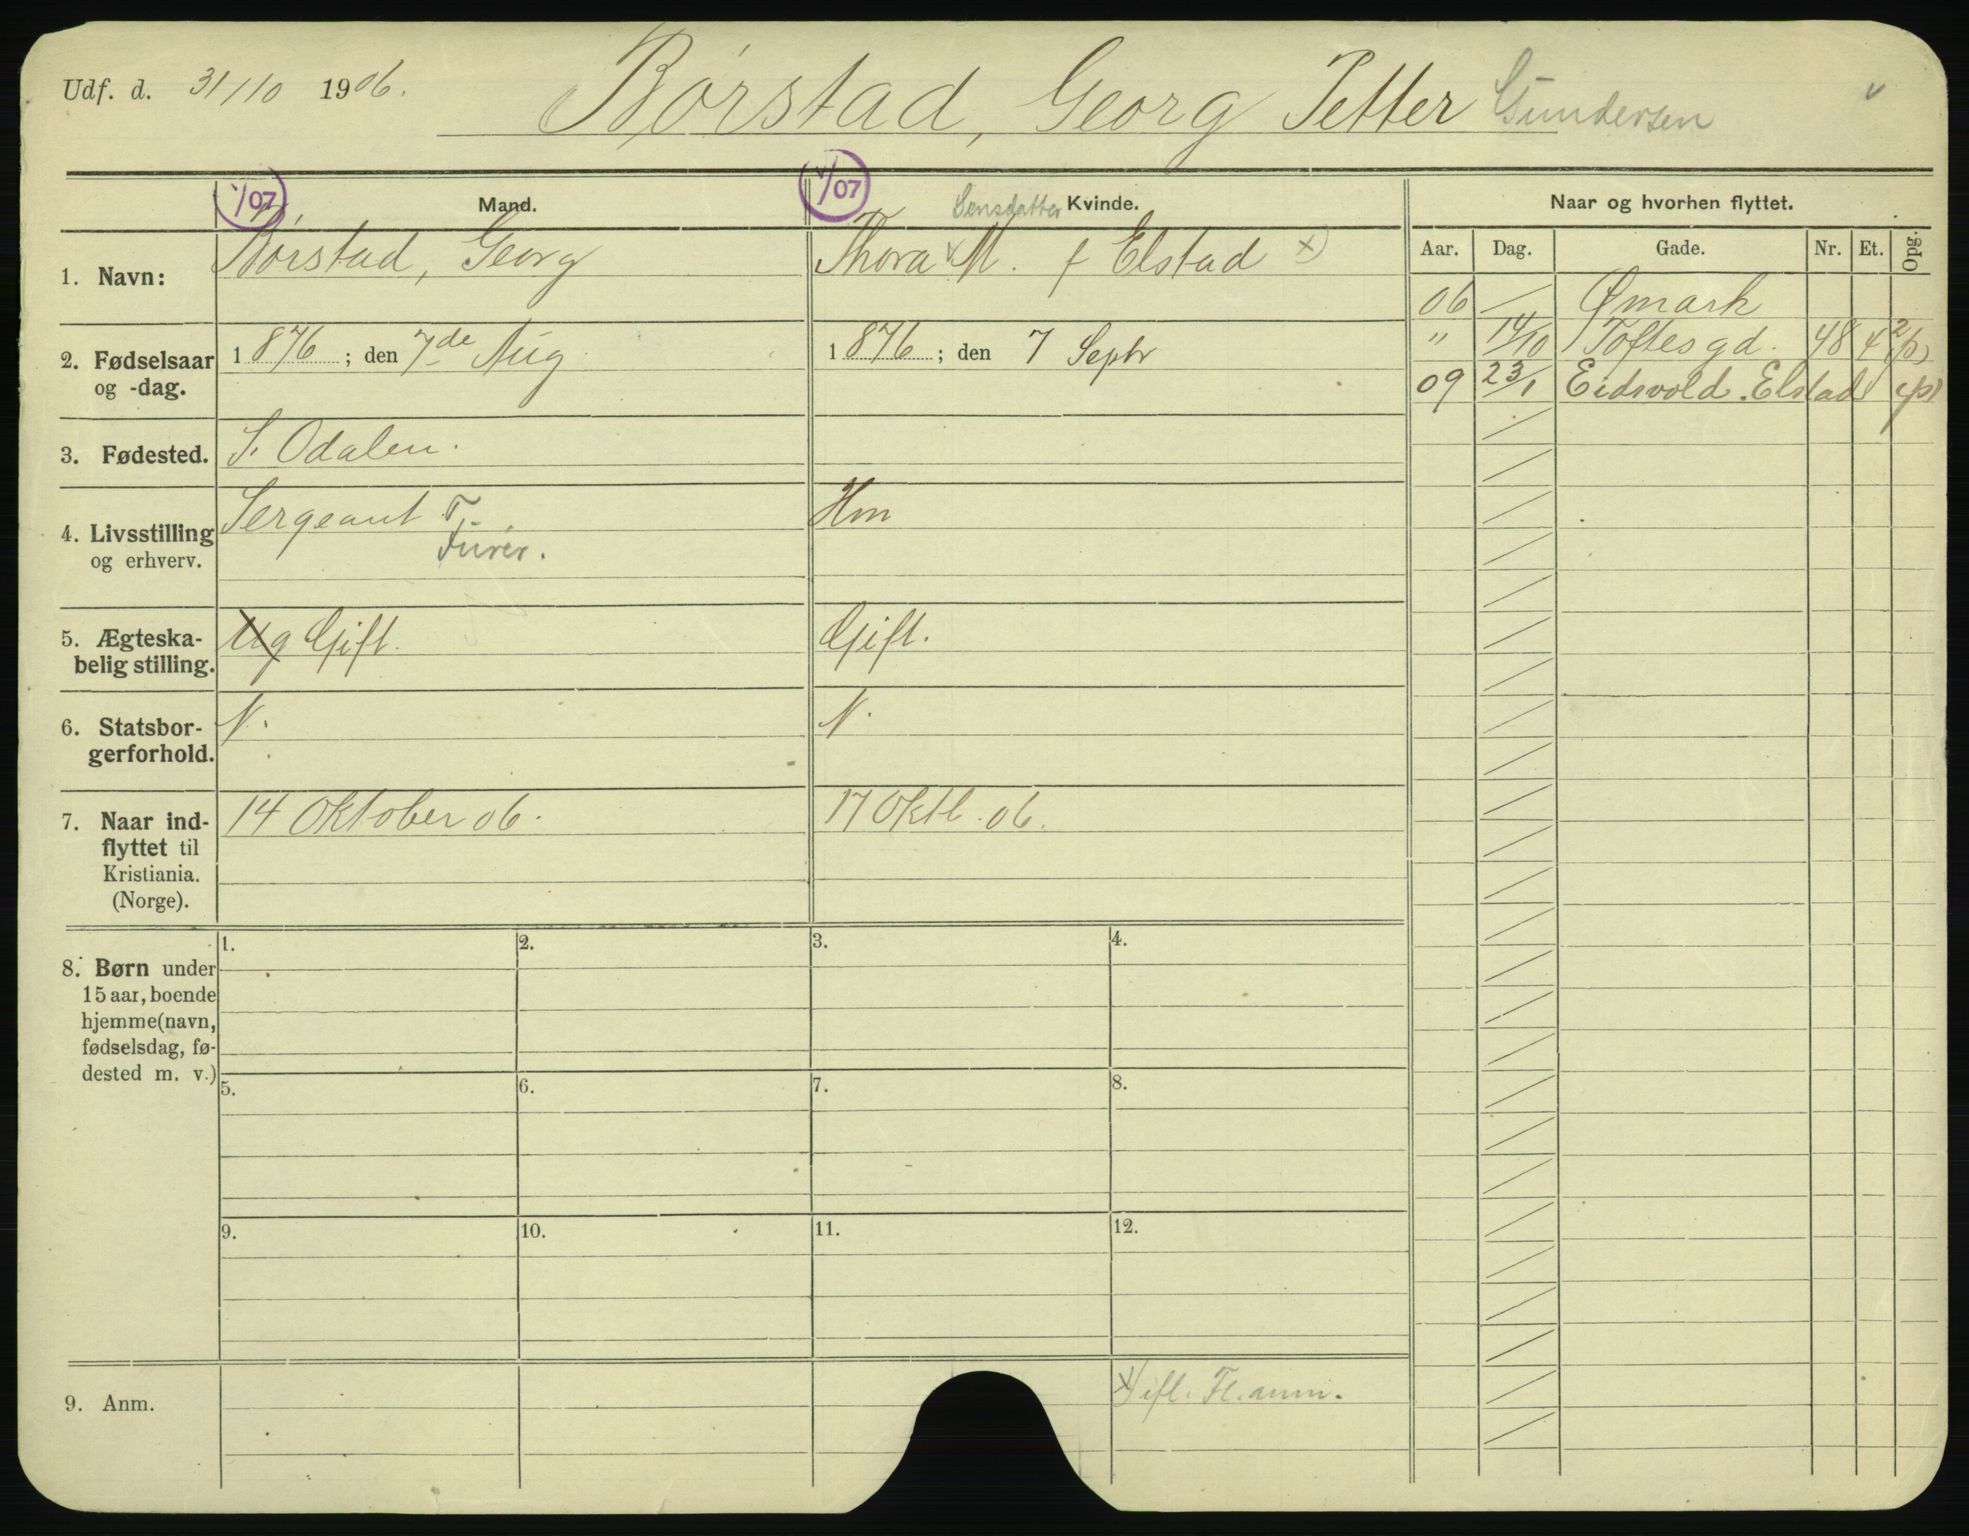 Udf. d. 31/10 1906.
Børstad, Georg Petter Gundersen
1/07 Mand.
1/07 Kvinde.
Naar og hvorhen flyttet.
Aar. Dag. Gade. Nr. Et. Opg.
1. Navn: Børstad, Georg
Thora M. f Elstad x)
06 Ømark
" 14/10 Toftesgd. 48 4 2 (p)
09 23/1 Eidsvold. Elstad (p)
2. Fødselsaar og -dag.
1876; den 7de Aug
1876; den 7 Septr
3. Fødested. S. Odalen.
4. Livsstilling og erhverv.
Sergeant F.
Furér.
Hm
5. Ægteska-
belig stilling.
Ug Gift.
Gift.
6. Statsbor-
gerforhold.
N.
N.
7. Naar ind-
flyttet til
Kristiania.
(Norge).
14 Oktober 06.
17 Oktb. 06.
8. Børn under
15 aar, boende
hjemme (navn,
fødselsdag, fø-
dested m. v.)
1. 2. 3. 4.
5. 6. 7. 8.
9. 10. 11. 12.
9. Anm.
x) ifl. Fl. anm.